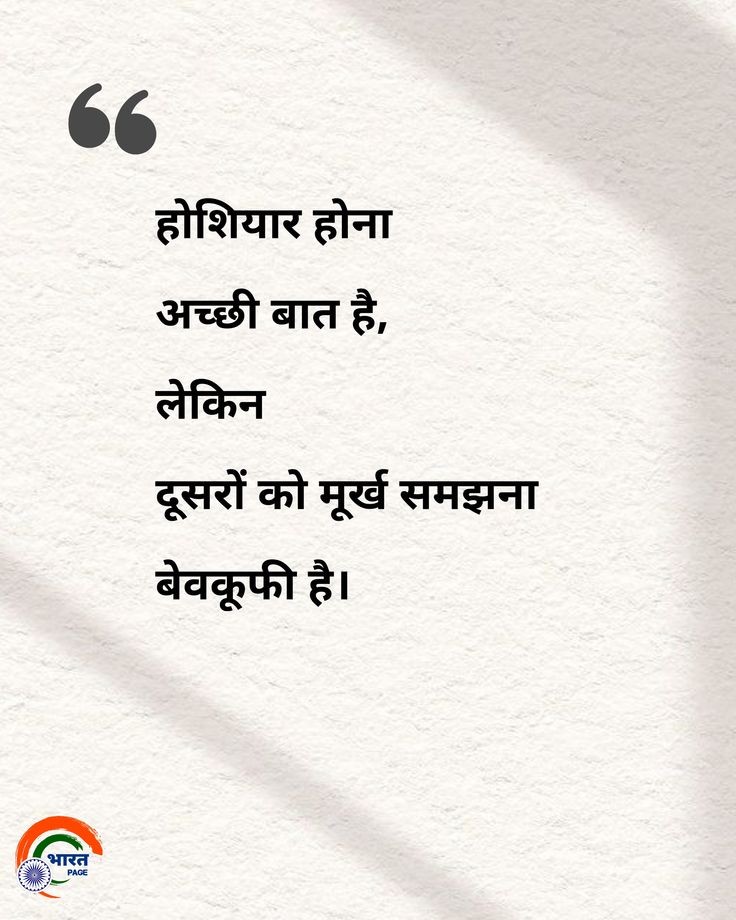 होशियार होना
अच्छी बात है,
लेकिन
दूसरों को मूर्ख समझना
बेवकूफी है।
भारत
PAGE